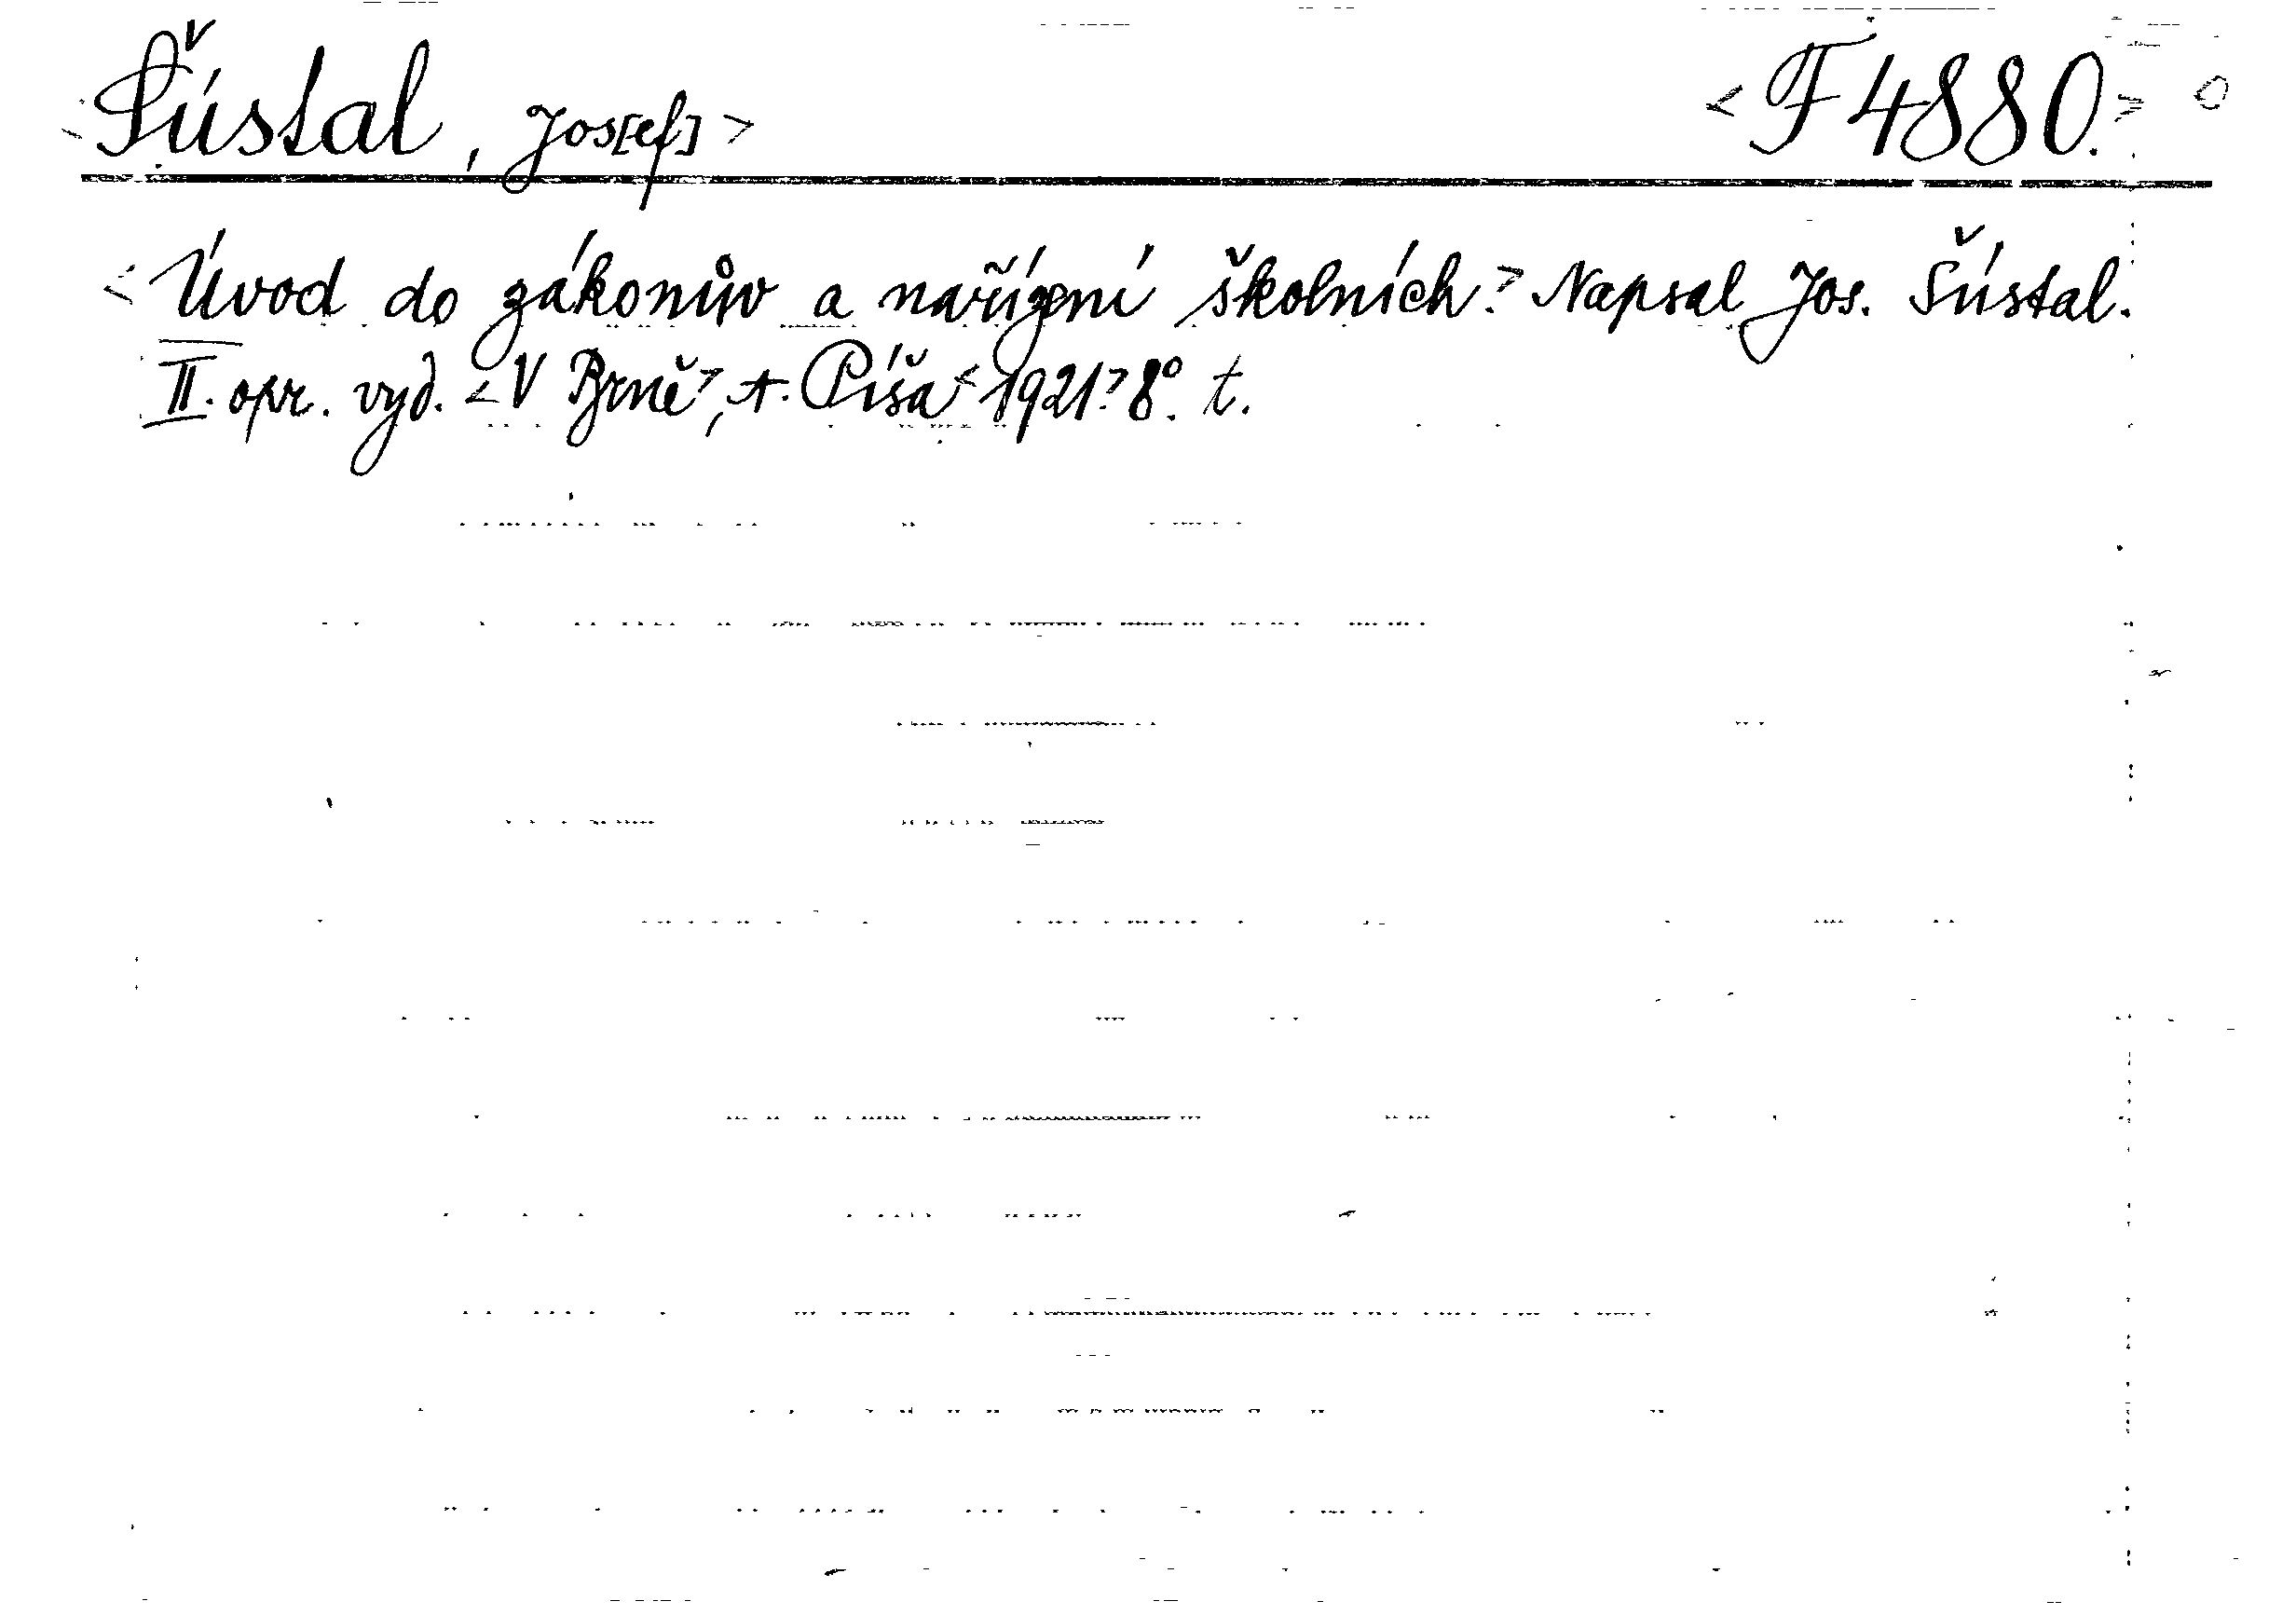 <Šústal, Jos[ef]> <F 4880.>
<Úvod do zákonův a nařízení školních.> Napsal Jos. Šústal.
II. opr. vyd. <V Brně>, A. Píša <1921.> 8°. t.